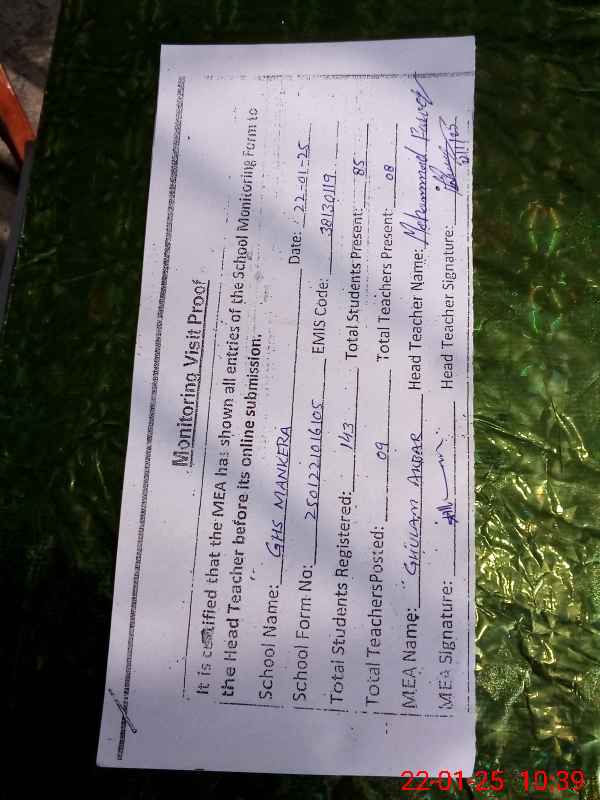 Monitoring Visit Proof
It is certified that the MEA has shown all entries of the School Monitoring Form to
the Head Teacher before its online submission.
School Name: GHS MANKERA Date: 22-01-25
School Form No: 2501221016105 EMIS Code: 38130119
Total Students Registered: 143 Total Students Present: 85
Total Teachers Posted: 09 Total Teachers Present: 08
MEA Name: GHULAM AKBAR Head Teacher Name: Muhammad
MEA Signature: Head Teacher Signature:
22-01-25 10:39